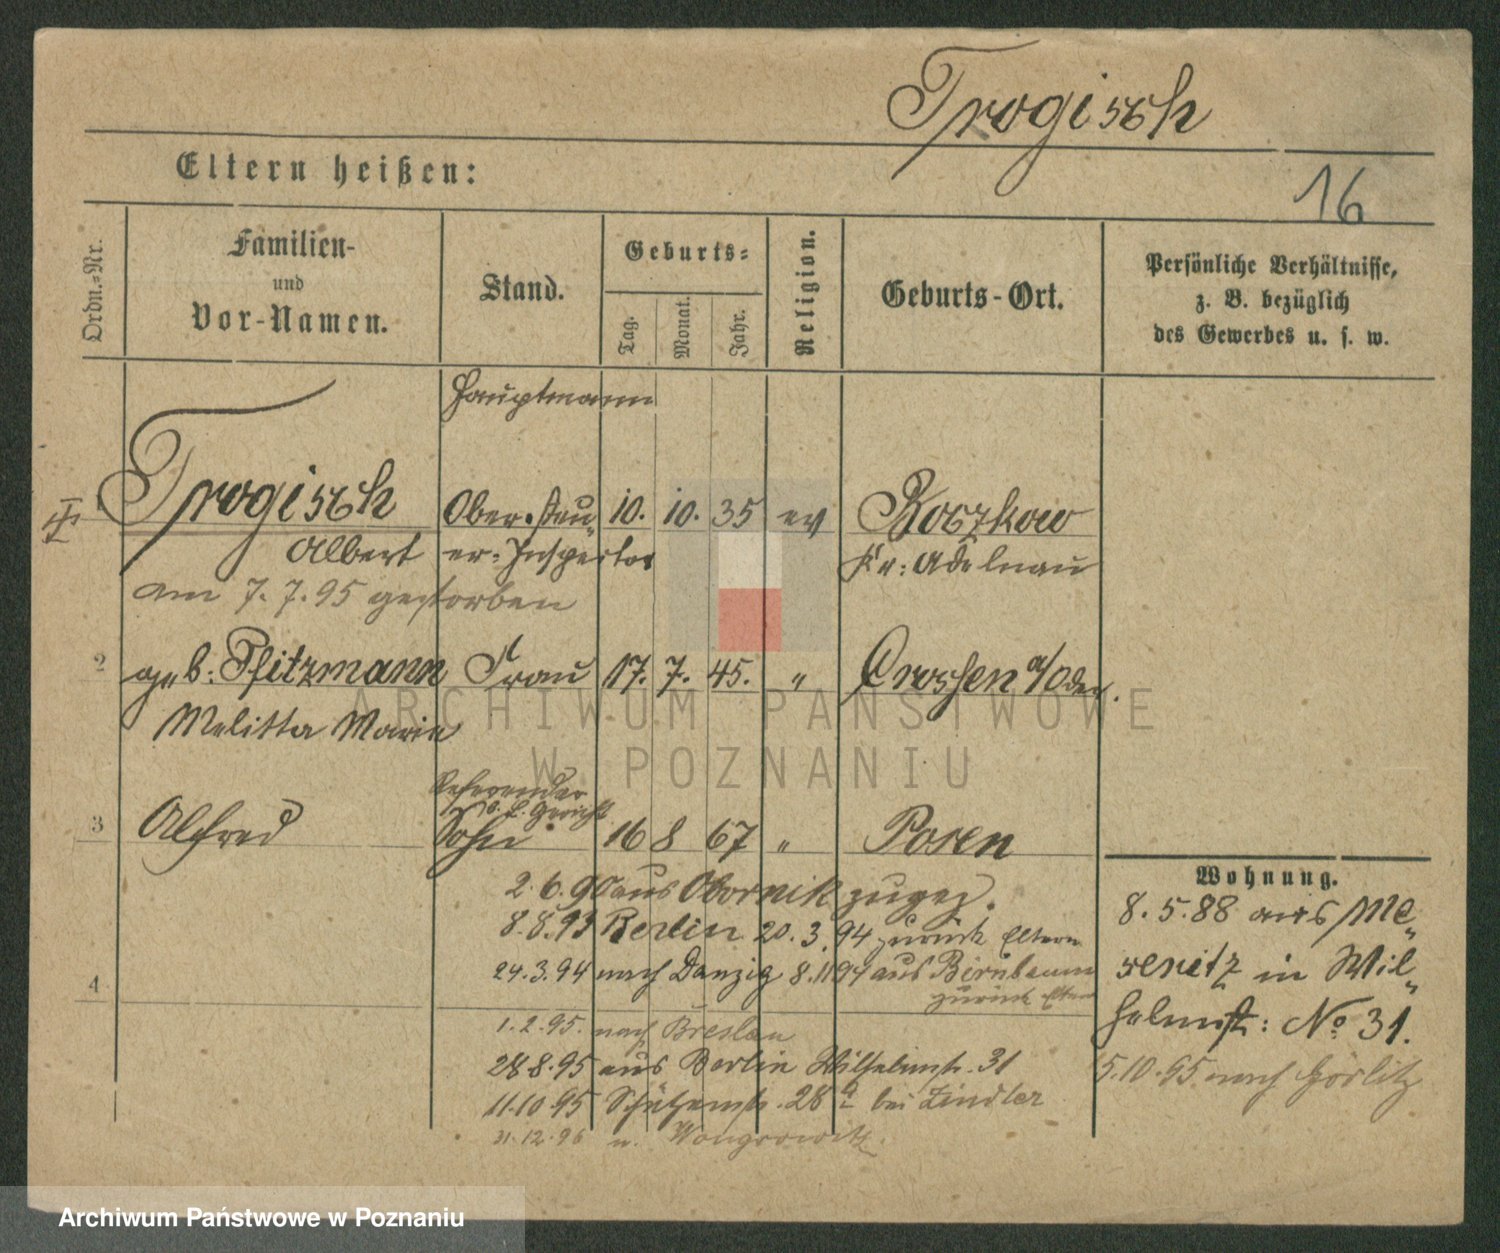 Trogisch
Eltern heißen:
16
Ordn.-Nr.
Familien-
und
Vor-Namen.
Stand.
Geburts-
Tag.
Monat.
Jahr.
Religion.
Geburts-Ort.
Persönliche Verhältnisse,
z. B. bezüglich
des Gewerbes u. s. w.
Hauptmann
Trogisch Ober-Steu- 10. 10. 35 ev Roczkow
Albert er-Inspektor Kr: Adelnau
am 7.7.95 gestorben
2 geb: Pfitzmann Frau 17. 7. 45. " Crossen a/Oder.
Melitta Marie
Referendar
b. L. Gericht
3 Alfred Sohn 16 8 67 " Posen
2.6.90 aus Obornik zugez.
8.8.93 Berlin 20.3.94 zurück Eltern
24.3.94 nach Danzig 8.11 94 aus Birnbaum
zurück Eltern
4
1.2.95. nach Breslau
28.8.95 aus Berlin Wilhelmstr. 31
11.10.95 Schützenstr. 28a bei Zindler
31.12.96 n. Wongrowitz.
Wohnung.
8.5.88 aus Me-
seritz in Wil-
helmst: No 31.
5.10.95 nach Görlitz
ARCHIWUM PAŃSTWOWE
W POZNANIU
Archiwum Państwowe w Poznaniu